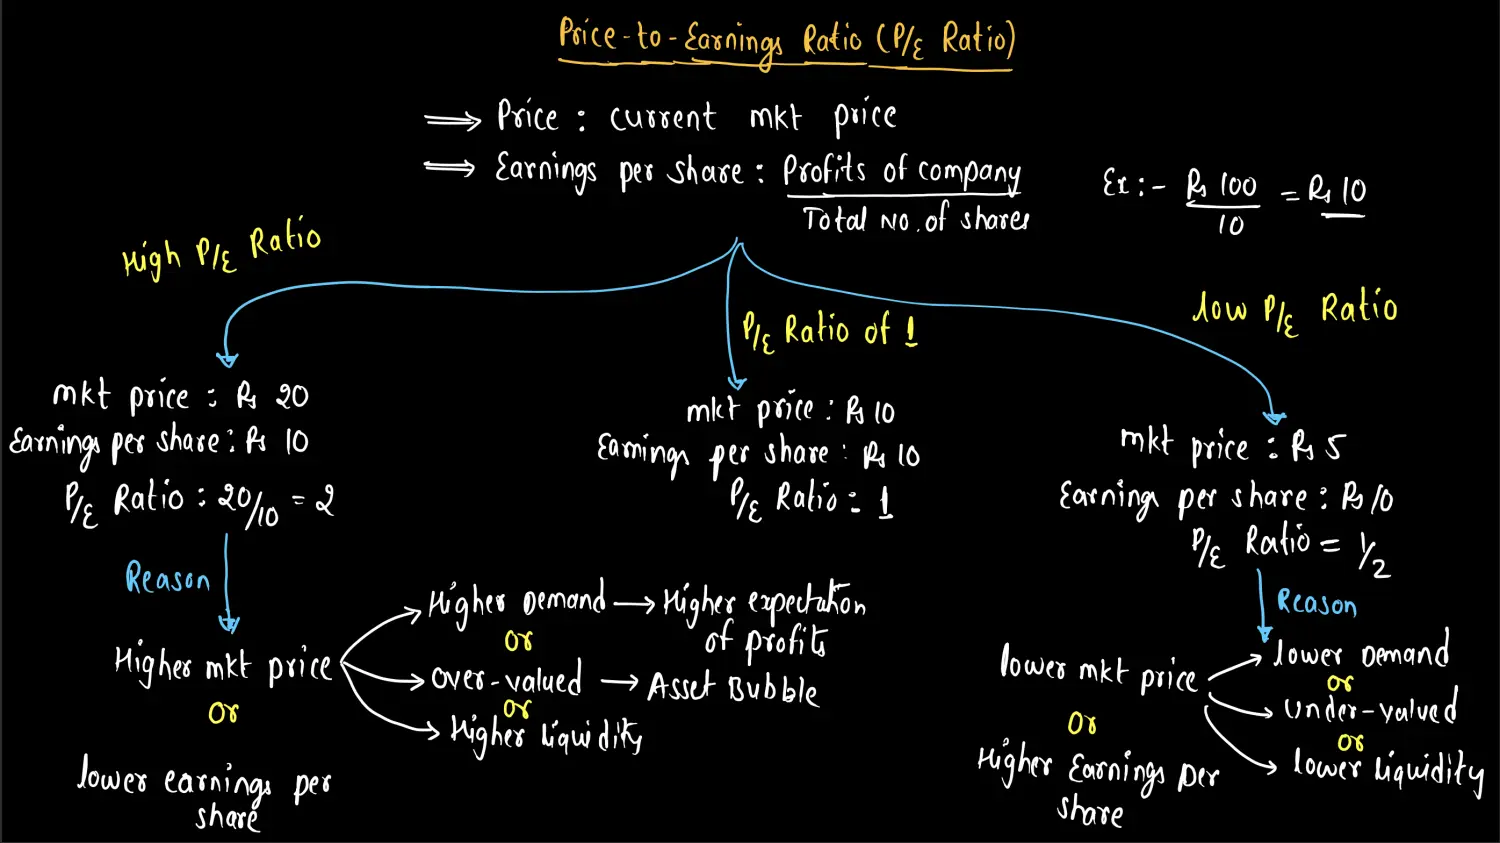 Price-to-Earnings Ratio (P/E Ratio)
⇒ Price : current mkt price
⇒ Earnings per share : Profits of company
Total No. of shares
Ex :- Rs 100
10
= Rs 10
High P/E Ratio
P/E Ratio of 1
low P/E Ratio
mkt price : Rs 20
Earnings per share : Rs 10
P/E Ratio : 20/10 = 2
Reason
Higher mkt price
or
lower earnings per
share
Higher Demand → Higher expectation
of profits
or
over-valued → Asset Bubble
or
Higher liquidity
mkt price : Rs 10
Earnings per share : Rs 10
P/E Ratio : 1
mkt price : Rs 5
Earnings per share : Rs 10
P/E Ratio = 1/2
Reason
lower mkt price
or
Higher Earnings per
share
lower Demand
or
under-valued
or
lower liquidity